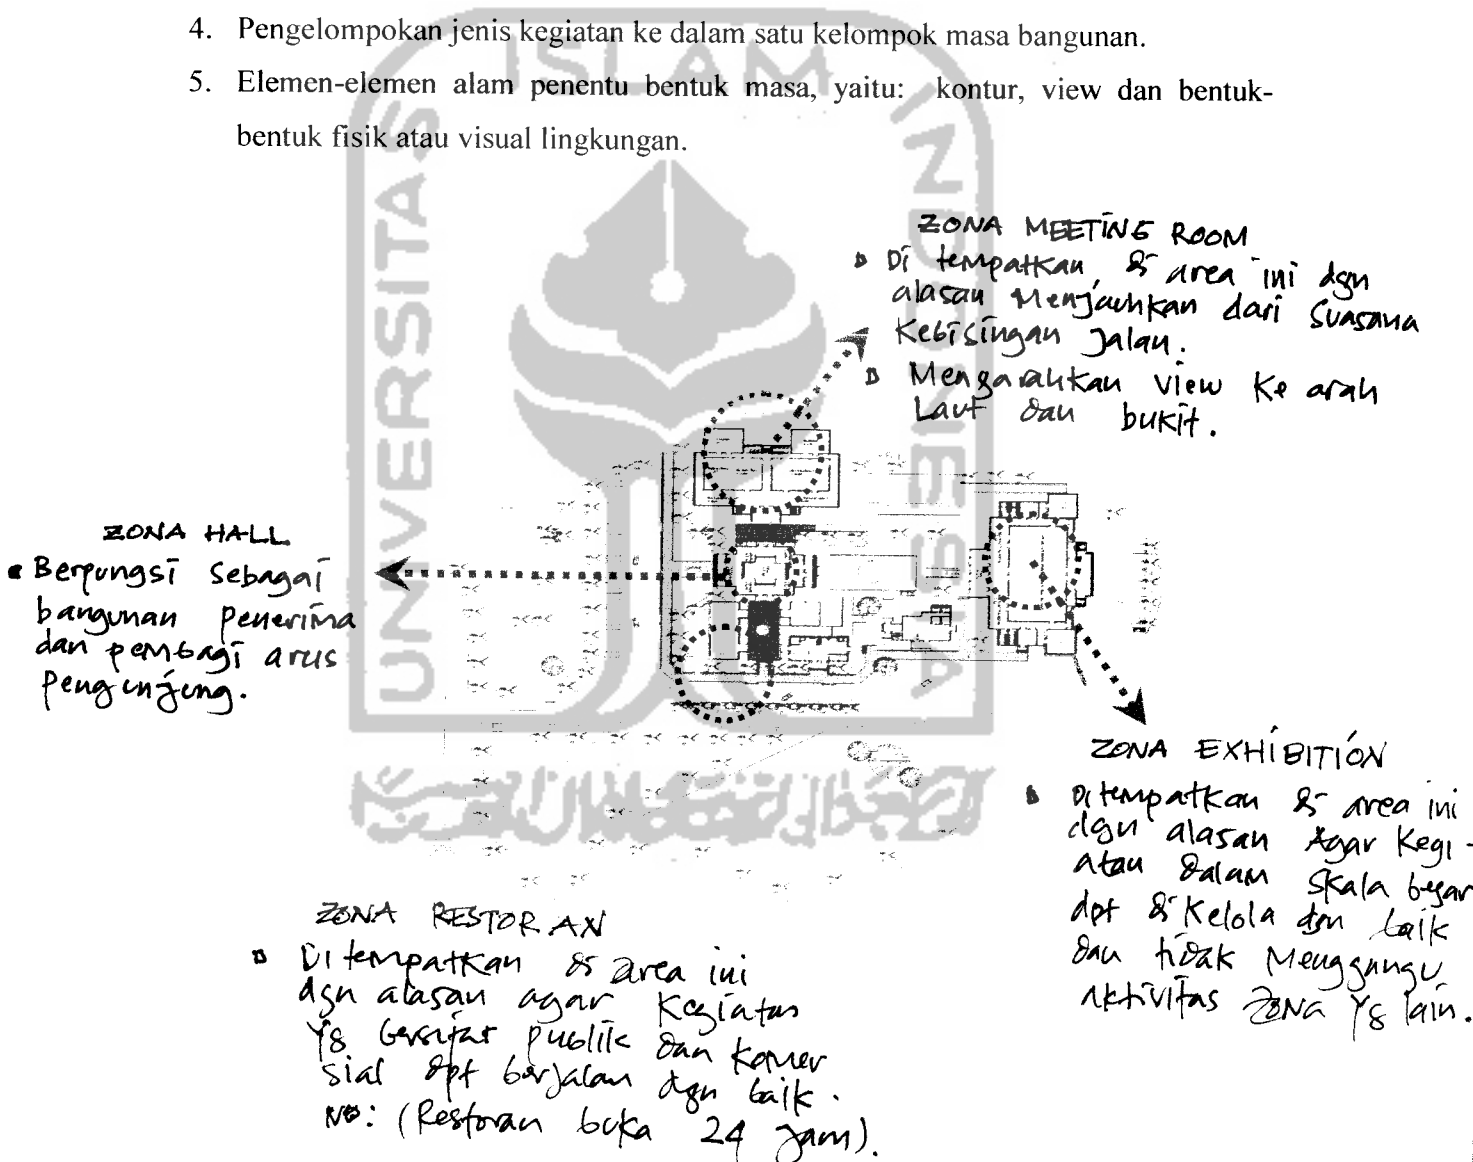 4. Pengelompokan jenis kegiatan ke dalam satu kelompok masa bangunan.
5. Elemen-elemen alam penentu bentuk masa, yaitu: kontur, view dan bentuk-
bentuk fisik atau visual lingkungan.
ISLAM
UNIVERSITAS
INDONESIA
ZONA MEETING ROOM
Di tempatkan di area ini dgn
alasan Menjauhkan dari Suasana
Kebisingan Jalan.
Mengarahkan View Ke arah
Laut dan bukit.
ZONA HALL
Berpungsi Sebagai
bangunan Penerima
dan pembagi arus
Pengunjung.
ZONA EXHIBITION
Ditempatkan di area ini
dgn alasan Agar Kegi-
atan dalam Skala besar
dpt di Kelola dgn baik
dan tidak Menggangu
aktivitas ZONA Yg lain.
ZONA RESTORAN
Di tempatkan di area ini
dgn alasan agar Kegiatan
Yg bersifat Publik dan Komer
sial dpt berjalan dgn baik.
NB: (Restoran buka 24 Jam).